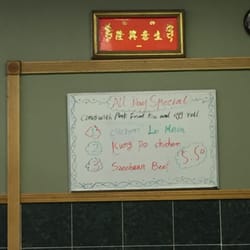 生意興隆
All Day Special
Comes with Pork Fried Rice and egg roll
1 chicken Lo Mein
2 Kung Po chicken
3 Szechuan Beef
$5.50